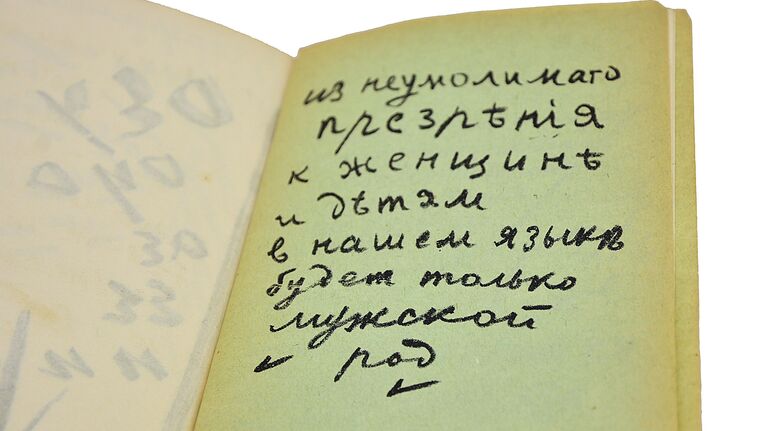 из неумолимаго
презрѣнія
к женщинѣ
и дѣтям
в нашем языкѣ
будет только
мужской
род